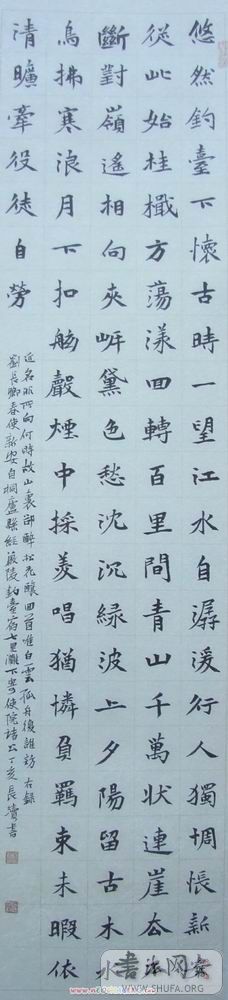 悠然釣臺下懷古時一望江水自潺湲行人獨惆悵新安
從此始桂檝方蕩漾回轉百里間青山千萬狀連崖去不
斷對嶺遙相向夾岸黛色愁沈沉綠波上夕陽留古木水
鳥拂寒浪月下扣舷聲煙中採菱唱猶憐負羈束未暇依
清曠牽役徒自勞
近名非所向何時故山裏卻醉松花釀回首唯白雲孤舟復誰訪 右錄
劉長卿奉使新安自桐廬縣經嚴陵釣臺宿七里灘下寄使院諸公 丁亥 長 書
書法网
WWW.SHUFA.ORG